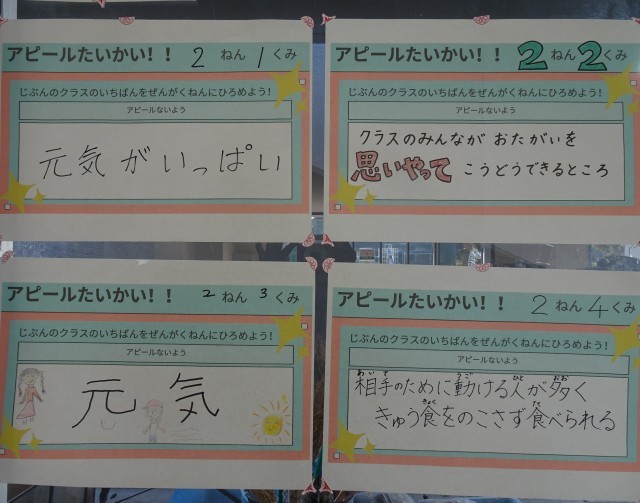 アピールたいかい！！ 2 ねん 1 くみ
じぶんのクラスのいちばんをぜんがくねんにひろめよう！
アピールないよう
元気がいっぱい
アピールたいかい！！ 2 ねん 2 くみ
じぶんのクラスのいちばんをぜんがくねんにひろめよう！
アピールないよう
クラスのみんなが おたがいを
思いやって こうどうできるところ
アピールたいかい！！ 2 ねん 3 くみ
じぶんのクラスのいちばんをぜんがくねんにひろめよう！
アピールないよう
元気
アピールたいかい！！ 2 ねん 4 くみ
じぶんのクラスのいちばんをぜんがくねんにひろめよう！
アピールないよう
あいて うご ひと おお
相手のために動ける人が多く
しょく た
きゅう食をのこさず食べられる